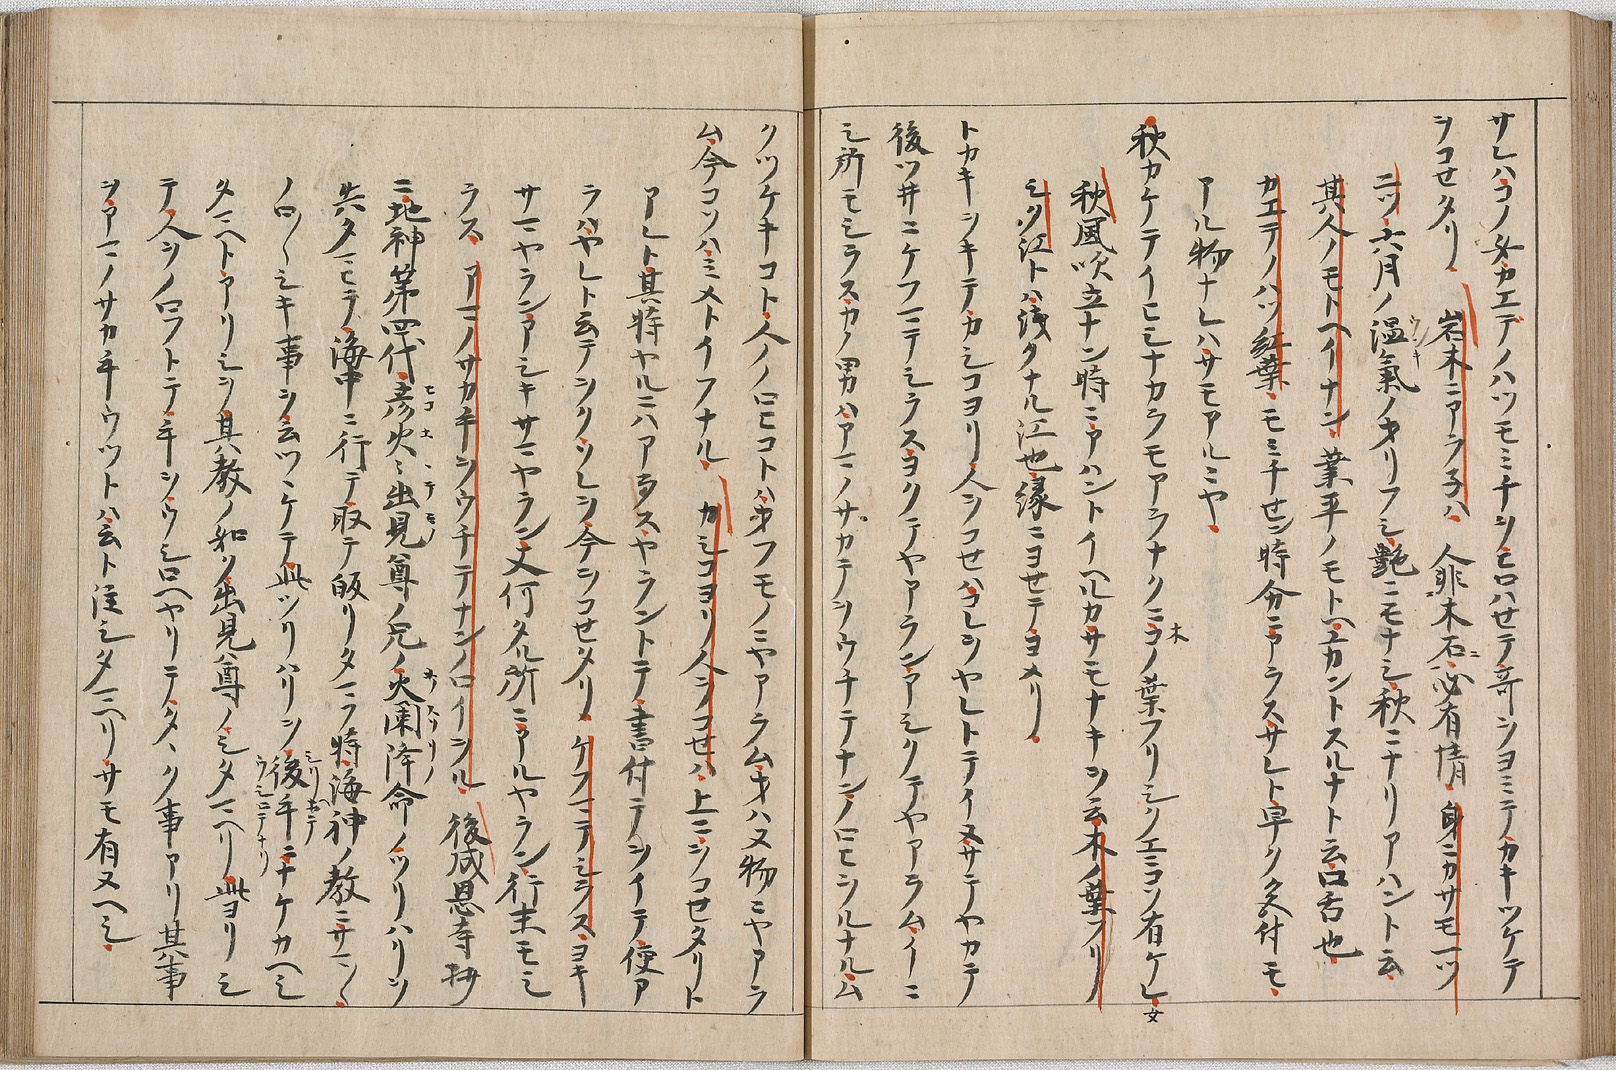 サレハコノ女カエテノハツモミチヲヒロハセテ哥ヲヨミテカキツケテ
ヲコセタリ 岩木ニアラ子ハ 人非木石ニ心有情 身ニカサモ一ツ
ニツ 六月ノ温氣ノサリフシ艶ニモナシ秋ニナリアハント云
其人ノモトヘイナン 業平ノモトヘユカントスルナト云口舌也
カエテノハツ紅葉 モミチセン時分ニアラスサレト早ク久付モ
アル物ナレハサモアルニヤ
秋カケテイヒシナカラモアラナクニコノ葉フリシクエニコソ有ケレ
秋風吹立ナン時ニアハントイヘルカサモナキヲ云木ノ葉フリ
シク江トハ浅クナル江也縁ニヨセテヨメリ
トカキヲキテカシコヨリ人ヲコセハコレヲヤレトテイヌサテヤカテ
後ツ井ニケフマテシラスヨクテヤアランアシクテヤアラムイニ
シ所モシラスカノ男ハアマノサカテヲウチテナンノロヒヲルナルム
クツケキコト人ノノロヒコトハオフモノニヤアラムオハヌ物ニヤアラ
ム今コソハミメトイフナル カシコヨリ人ヲコセハ 上ニヲコセタリト
アレト其時ヤルニハアラスヤラントテ書付テヲイテ便ア
ラハヤレト云テヲクヲレヲ今ヲコセタリ ケフマテシラス ヨキ
サマヤランアシキサマヤラン又何タル所ニアルヤラン行末モシ
ラス アマノサカ手ヲウチテナンノロイヲル 後成恩寺抄
ニ地神第四代彦火ゝ出見尊ノ兄ノ火闌降命ノツリハリヲ
失タマヒテ海中ニ行テ取テ皈リタマフ時海神ノ教ニサマ〱
ノロ〱シキ事ヲ云ツヽケテ此ツリハリヲ後手ニナケカヘシ
タマヘトアリシヲ其教ノ如ク出見尊ノシタマヘリ此ヨリシ
テ人ヲノロフトテ手ヲウシロヘヤリテタヽク事アリ其事
ヲアマノサカ手ウツトハ云ト注シタマヘリサモ有ヌヘシ